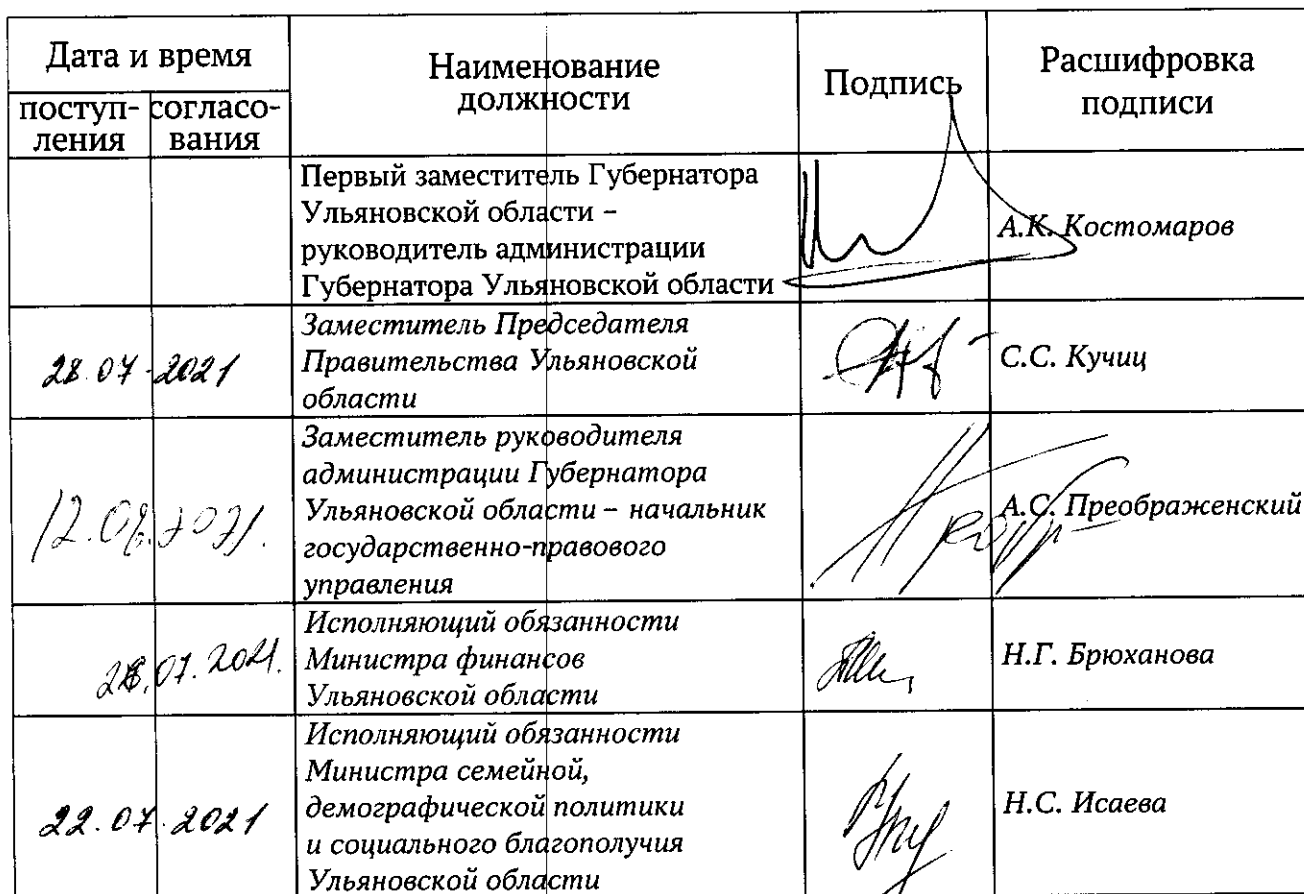 Дата и время
Наименование
должности
Подпись
Расшифровка
подписи
поступ-
ления
согласо-
вания
Первый заместитель Губернатора
Ульяновской области –
руководитель администрации
Губернатора Ульяновской области
А.К. Костомаров
28.07.2021
Заместитель Председателя
Правительства Ульяновской
области
С.С. Кучиц
12.08.2021.
Заместитель руководителя
администрации Губернатора
Ульяновской области – начальник
государственно-правового
управления
А.С. Преображенский
28.07.2021.
Исполняющий обязанности
Министра финансов
Ульяновской области
Н.Г. Брюханова
22.07.2021
Исполняющий обязанности
Министра семейной,
демографической политики
и социального благополучия
Ульяновской области
Н.С. Исаева